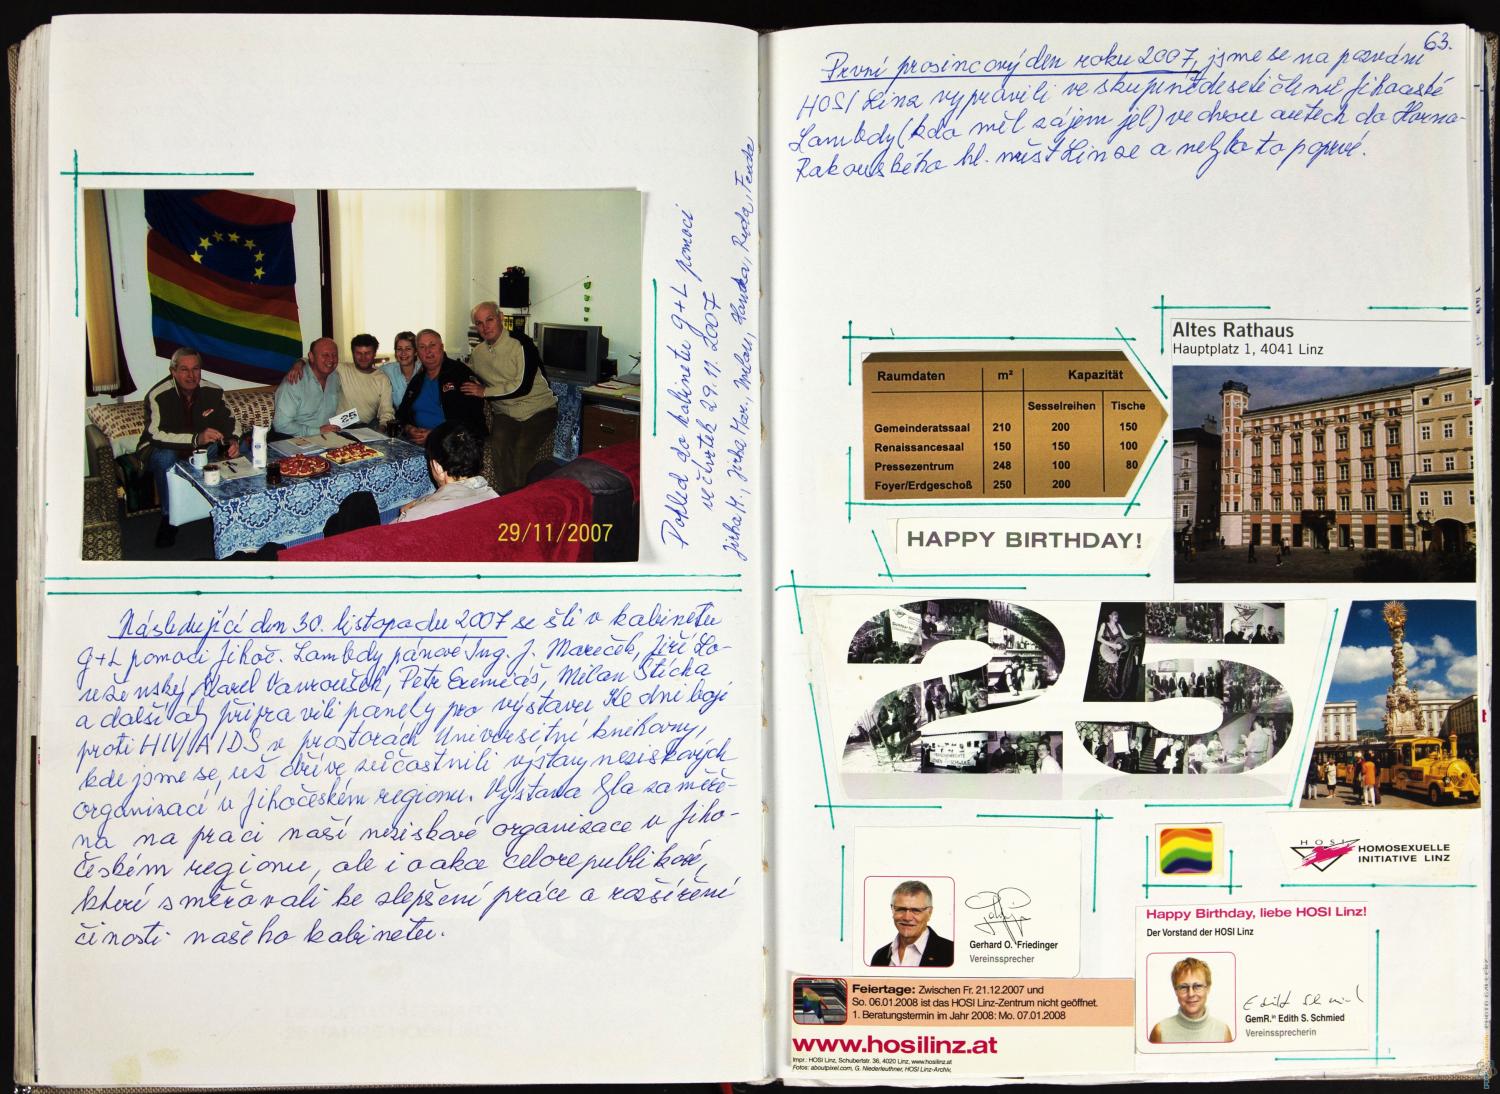 29/11/2007
Pohled do kabinetu g+L pomoci
ve čtvrtek 29.11.2007
Jirka M., Jirka Mar., Milan, Hanka, Ruda, Fenda
Následující den 30. listopadu 2007 se šli v kabinetu
g+L pomoci Jihoč. Lambdy pánové Ing. J. Mareček, Jiří
Karel Vavroušek, Petr Milan Šticha
a další aby připravili panely pro výstavu Ke dni boji
proti HIV/AIDS v prostorách Universitní knihovny,
kde jsme se už dříve zúčastnili výstavy neziskových
organizací v Jihočeském regionu. Výstava byla zaměře-
na na práci naší neziskové organizace v Jiho-
českém regionu, ale i o akce celorepublikové,
které směřovali ke zlepšení práce a rozšíření
činosti našeho kabinetu.
63.
První prosincový den roku 2007, jsme se na pozvání
HOSI Linz vypravili ve skupině deseti členů Jihočeské
Lambdy (kdo měl zájem jel) ve dvou autech do Horno-
Rakouského hl. města Linze a nebylo to poprvé.
Altes Rathaus
Hauptplatz 1, 4041 Linz
Raumdaten m² Kapazität
Sesselreihen Tische
Gemeinderatssaal 210 200 150
Renaissancesaal 150 150 100
Pressezentrum 248 100 80
Foyer/Erdgeschoß 250 200
HAPPY BIRTHDAY!
25
HOSI
HOMOSEXUELLE
INITIATIVE LINZ
Gerhard O. Friedinger
Vereinssprecher
Happy Birthday, liebe HOSI Linz!
Der Vorstand der HOSI Linz
Edith Schmied
GemR.in Edith S. Schmied
Vereinssprecherin
Feiertage: Zwischen Fr. 21.12.2007 und
So. 06.01.2008 ist das HOSI Linz-Zentrum nicht geöffnet.
1. Beratungstermin im Jahr 2008: Mo. 07.01.2008
www.hosilinz.at
Impr.: HOSI Linz, Schubertstr. 36, 4020 Linz, www.hosilinz.at
Fotos: aboutpixel.com, G. Niederleuthner, HOSI Linz-Archiv,